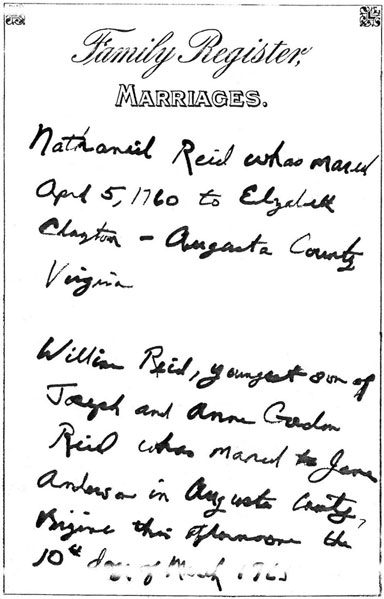 Family Register,
MARRIAGES.
Nathaneil Reid whas mared
Apri 5, 1760 to Elyzabeth
Clayton - Augusta County
Virginia
William Reid, youngest son of
Joseph and Anne Gordon
Reid whas mared to Jane
Anderson in Augusta County,
this afternoone the
10th day of March